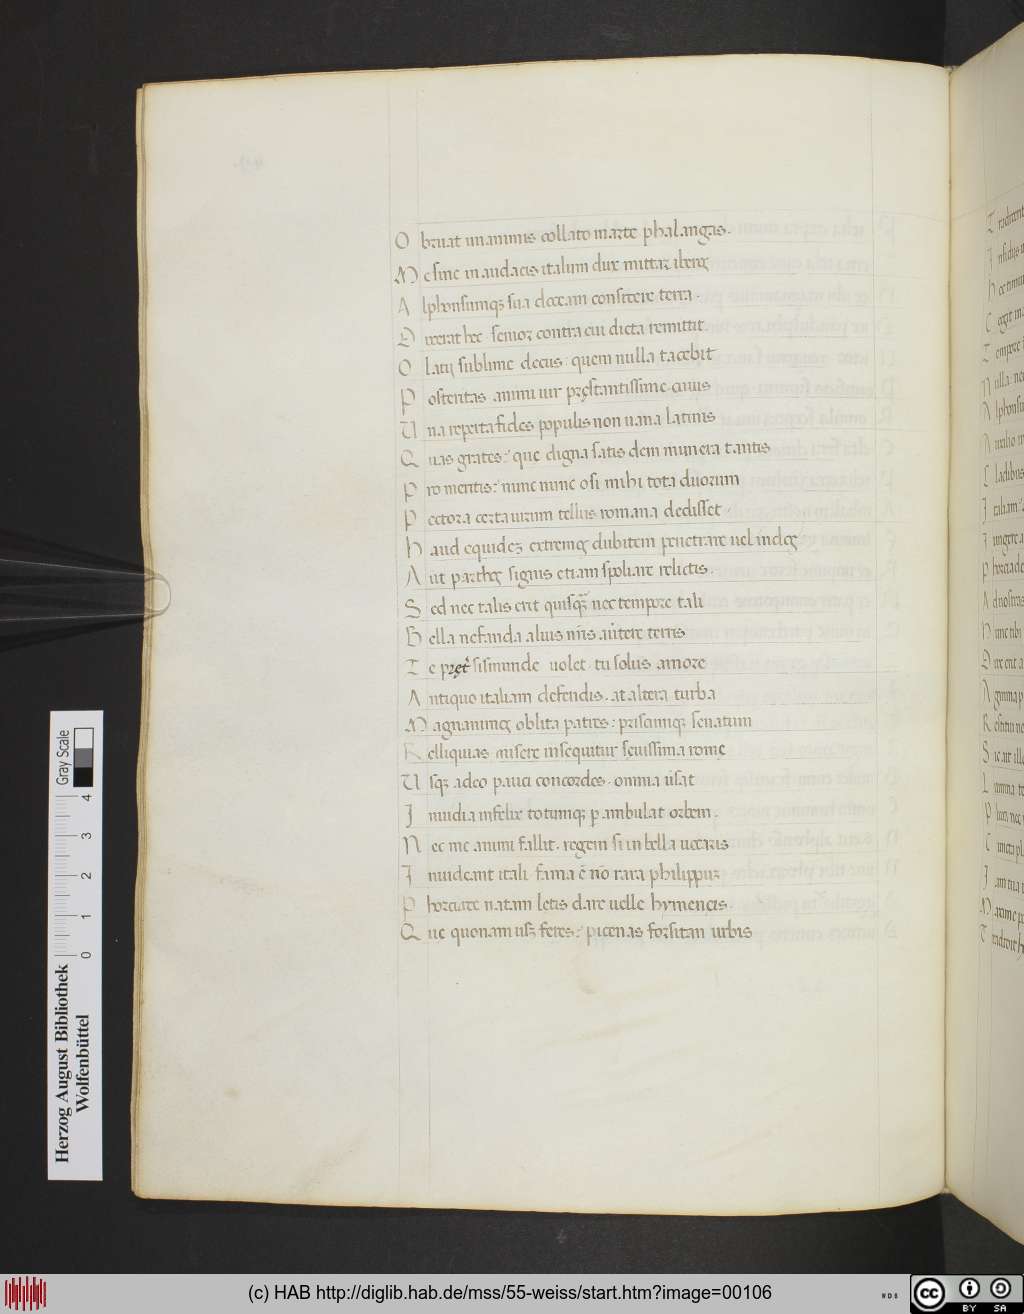 O bruat unanimis collato marte phalangas.
M e sine in audacis italum dux mittar iberos
A lphonsumqꝫ sua doceam consistere terra.
D ixerat hec. senior contra cui dicta remittit.
O latij sublime decus. quem nulla tacebit
P osteritas. animi uir pręstantissime ciuis
U na reperta fides populis non uana latinis
Q uas grates: que digna satis dem munera tantis
P ro meritis: nunc nunc o si mihi tota duorum
P ectora certa uirum tellus romana dedisset.
H aud equidez extremos dubitem penetrare uel indos
A ut parthos signis etiam spoliare relictis.
S ed nec talis erit quisqꝫ nec tempore tali
B ella nefanda alius nr̄is auertere terris
T e pręt sismunde uolet. tu solus amore
A ntiquo italiam defendis. at altera turba
M agnanimos oblita patres: priscumqꝫ senatum
R elliquias misere insequitur seuissima romę
U sqꝫ adeo pauci concordes. omnia uersat
I nuidia infelix totumqꝫ perambulat orbem.
N ec me animi fallit. regem si in bella uocaris
I nuideant itali. fama ē nō rara philippuz
P horciare natam letis dare uelle hymeneis.
Q ue quoniam usqꝫ feres: picenas forsitan urbis
Herzog August Bibliothek
Wolfenbüttel
Gray Scale
0 1 2 3 4
(c) HAB http://diglib.hab.de/mss/55-weiss/start.htm?image=00106
cc BY SA